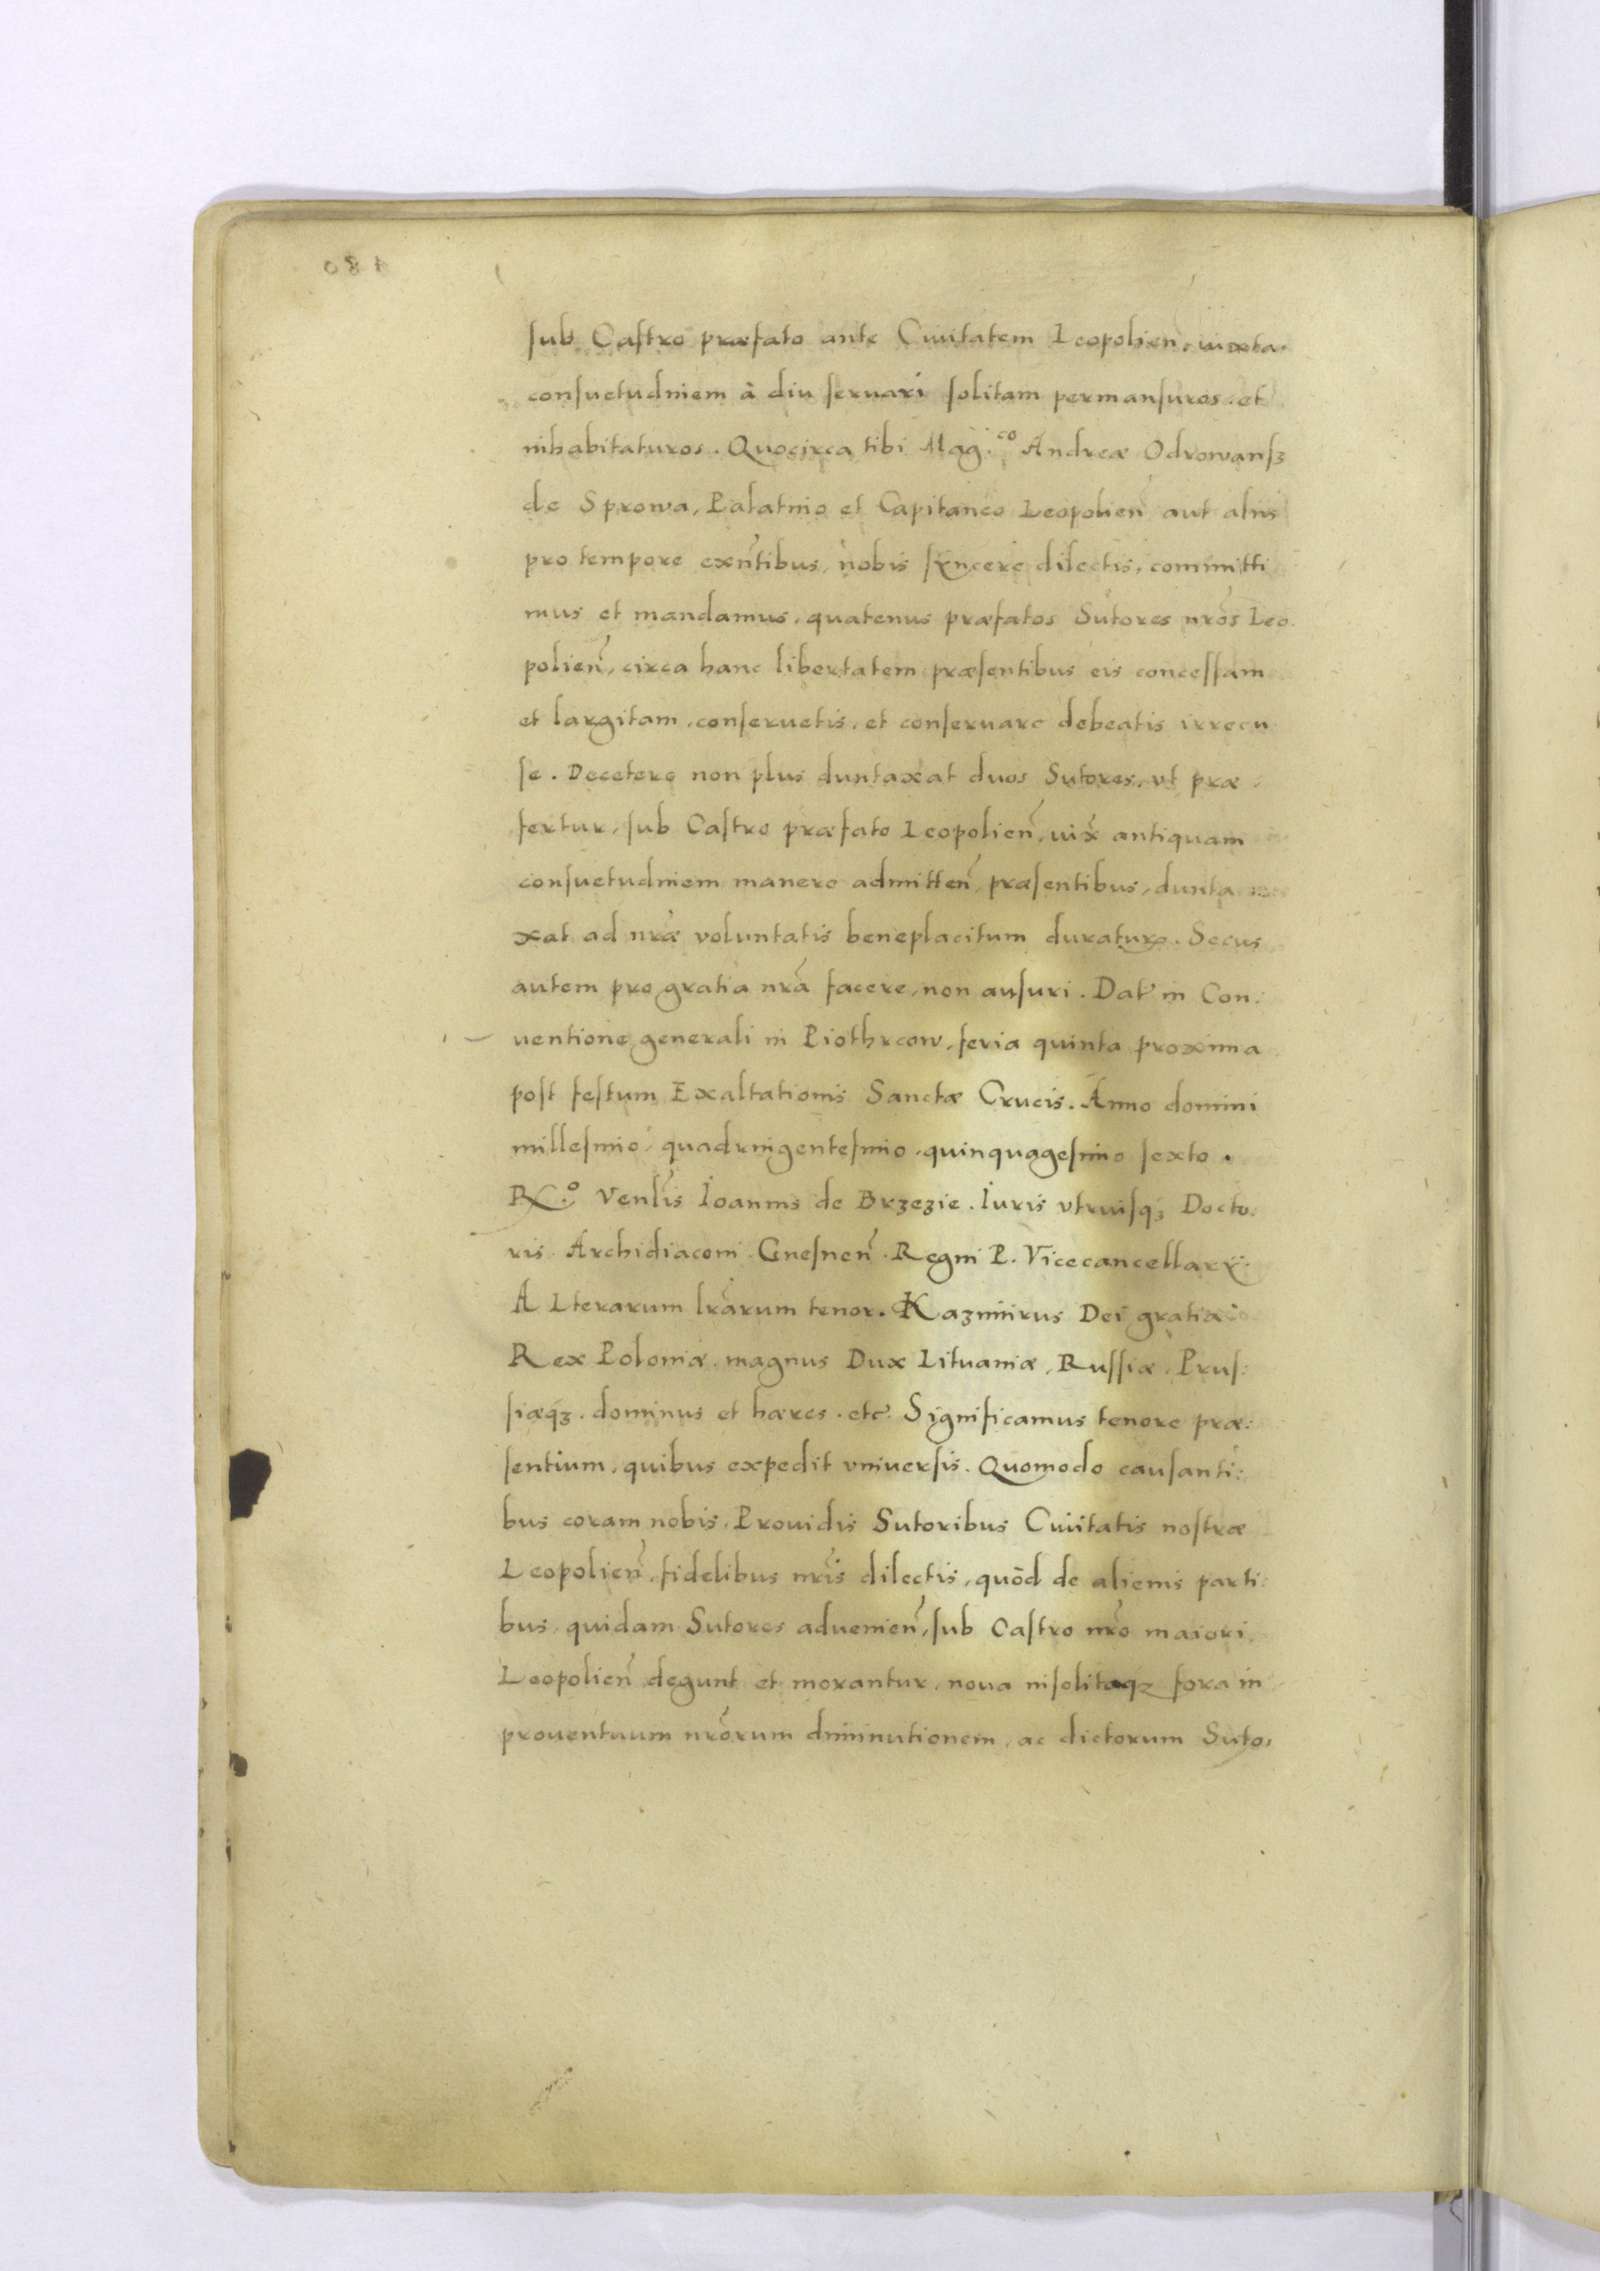 180
ſub Caſtro præfato ante Ciuitatem Leopolien̄, iuxta
conſuetudinem à diu ſeruari ſolitam permanſuros, et
inhabitaturos. Quocirca tibi Mag.co Andreæ Odrowanſz
de Sprowa, Palatino et Capitaneo Leopolien̄ aut aliis
pro tempore exn̄tibus, nobis ſyncere dilectis, committi
mus et mandamus, quatenus præfatos Sutores nr̄os Leo
polien̄, circa hanc libertatem præſentibus eis conceſſam
et largitam, conſeruetis, et conſeruare debeatis irrecu
ſe. Decetero non plus duntaxat duos Sutores, vt præ
fertur, ſub Caſtro præfato Leopolien̄, iux̄ antiquam
conſuetudinem manere admitten̄, præſentibus, dunta
xat ad nr̄æ voluntatis beneplacitum duraturo. Secus
autem pro gratia nr̄a facere, non auſuri. Dat̄ in Con:
uentione generali in Piothrcow, feria quinta proxima
poſt feſtum Exaltationis Sanctæ Crucis. Anno domini
milleſimo, quadringenteſimo, quinquageſimo ſexto.
R.o Venl̄is Ioannis de Brzezie. Iuris vtriuſqꝫ Docto:
ris. Archidiaconi Gneſnen̄. Regni P. Vicecancellarÿ.
A Lterarum lr̄arum tenor. Kazimirus Dei gratia
Rex Poloniæ, magnus Dux Lituaniæ, Ruſſiæ, Pruſ:
ſiæqꝫ. dominus et hæres. etc̄. Significamus tenore præ:
ſentium, quibus expedit vniuerſis. Quomodo cauſanti:
bus coram nobis, Prouidis Sutoribus Ciuitatis noſtræ
Leopolien̄, fidelibus nr̄is dilectis, quòd de alienis parti:
bus, quidam Sutores aduenien̄, ſub Caſtro nr̄o maiori
Leopolien̄ degunt et morantur, noua inſolitaqꝫ fora in
prouentuum nr̄orum diminutionem, ac dictorum Suto: